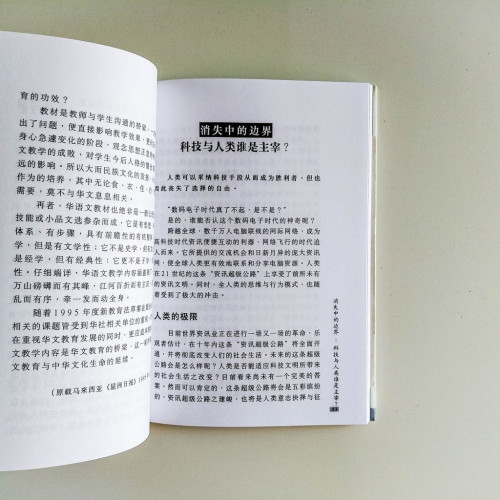 育的功效？
教材是教师与学生沟通的桥梁，一
出了问题，便直接影响教学效果，更
身心急遽变化的阶段，观念思想正
文教学的成败，对学生今后人格的
远的影响。所以大而民族文化的
作为的培养，其中无论食、衣、住、行
需要，莫不与华文息息相关。
再者，华语文教材也绝非是一
技能或小品文选参杂而成，它是有
体系、有步骤，具有前瞻性的有机
学，但是有文学性；它不是史学，但
是经学，但有经典性；它更不是
性。仔细端详，华语文教学内容
万山磅礴而有其峰，江河百折而有
乱而有序，牵一发而动全身。
随着1995年度新教育法
相关的课题皆受到华社相关单位的
在重视华文教育发展的同时，更应
文教学内容是华文教育的桥梁，这
文教育与中华文化生命的延续。
（原载马来西亚《星洲日报》
消失中的边界
科技与人类谁是主宰？
人类可以占领科技手段从而成为胜利者，但也
因此丧失了选择的自由。
“数码电子时代真了不起，是不是？”
是的，谁能否认这个数码电子时代的神奇呢？
跨越全球，数千万人电脑联线的国际网络，成为
高科技时代资讯便捷互动的利器。网络飞行的时代迫
人而来，它所提供的交流机会和日新月异的庞大资讯
网，使全球人类更有效地联系和分享电脑资源。人类
在21世纪的这条“资讯超级公路”上享受了前所未
有的资讯文明。同时，全人类的思维与行为模式，也随
着受到了极大的冲击。
人类的极限
目前世界资讯业正在进行一场又一场的革命，乐
观者估计，在十年内这条“资讯超级公路”将全面开
通，并将彻底改变人们的社会生活。未来的这条超级
公路会是怎么样呢？人类是否能适应科技文明所带来
的社会生活之改变？目前看来尚未有一个完美的答
案。然而可以肯定的，这条超级公路将会是五彩缤纷
的。资讯超级公路之建峻，也将是人类意志抉择与征
消失中的边界
科技与人类谁是主宰？